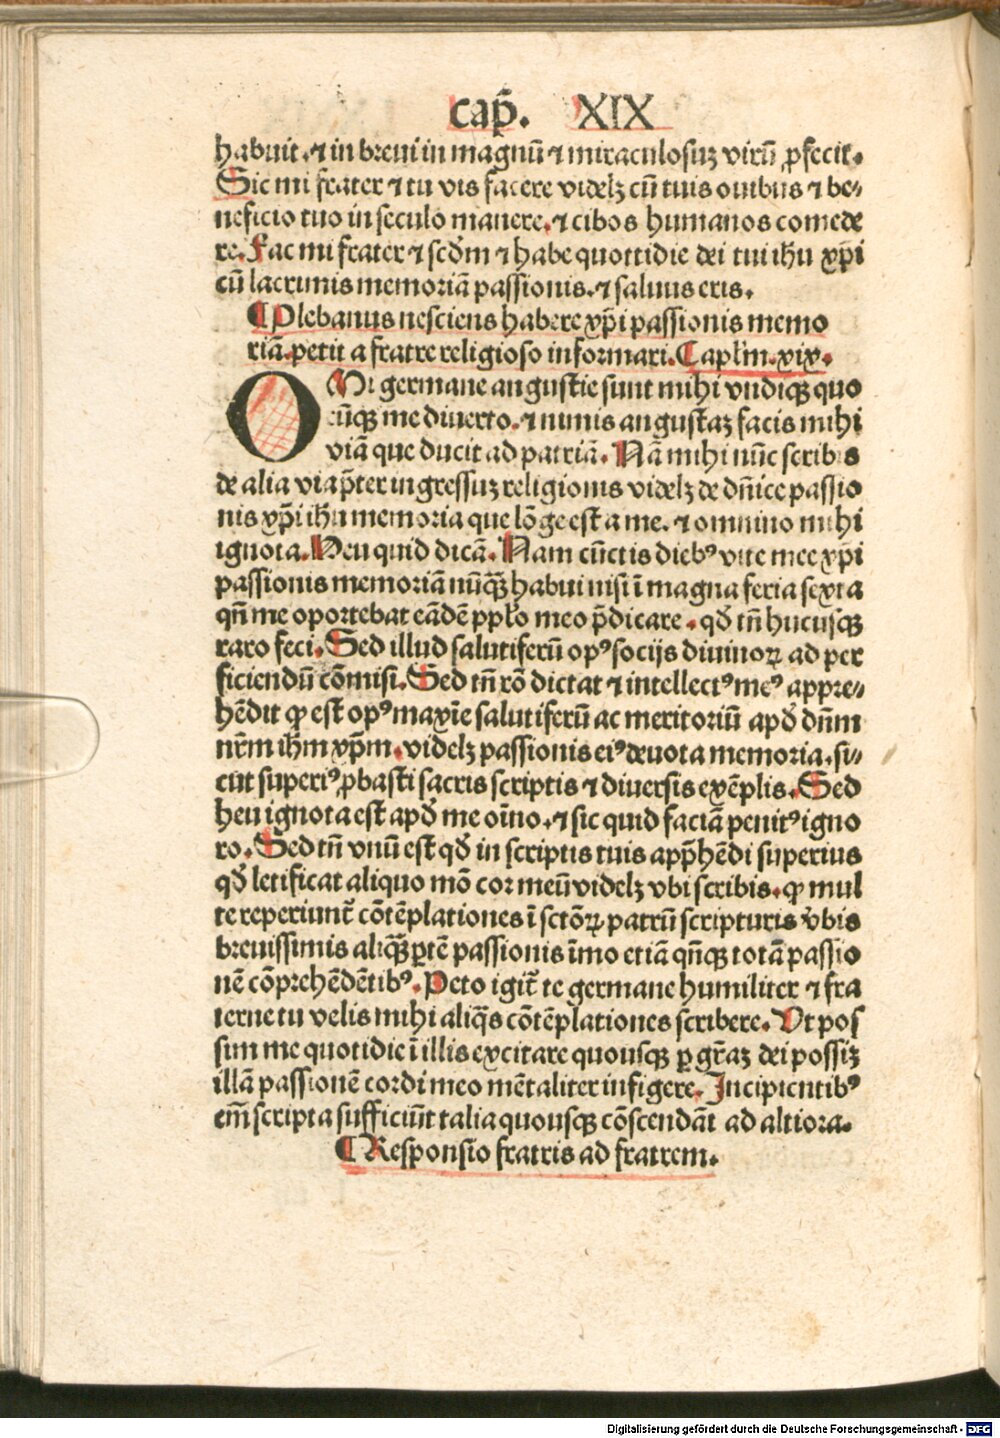 cap̄. XIX
habuit. ⁊ in breui in magnū ⁊ miraculosuꝫ virū ꝓfecit.
Sic mi frater ⁊ tu vis facere videlꝫ cū tuis ouibus ⁊ be⸗
neficio tuo in seculo manere. ⁊ cibos humanos comede
re. Fac mi frater ⁊ scďm ⁊ habe quottidie dei tui ihū xp̄i
cū lacrimis memoriā passionis. ⁊ saluus eris.
¶ Plebanus nesciens habere xp̄i passionis memo
riā. petit a fratre religioso informari. Caplm̄. xix.
O Mi germane angustie sunt mihi vndiqꝫ quo
cūqꝫ me diuerto. ⁊ nimis angustaꝫ facis mihi
viā que ducit ad patriā. Nā mihi nūc scribis
de alia via p̄ter ingressuꝫ religionis videlꝫ de dn̄ice passio
nis xp̄i ihū memoria que lōge est a me. ⁊ omnino mihi
ignota. Heu quid dicā. Nam cūctis diebꝰ vite mee xp̄i
passionis memoriā nūqꝫ̄ habui nisi ī magna feria sexta
qn̄ me oportebat eādē pplo meo p̄dicare. qď tn̄ hucusqꝫ
raro feci. Sed illud salutiferū opꝰ socijs diuinoꝝ ad per
ficiendū cōmisi. Sed tn̄ rō dictat ⁊ intellectꝰ meꝰ appre⸗
hēdit ꝙ est opꝰ maxīe salutiferū ac meritoriū apď dn̄m
nr̄m ihm̄ xp̄m. videlꝫ passionis eiꝰ deuota memoria. si⸗
cut superiꝰ ꝓbasti sacris scriptis ⁊ diuersis exēplis. Sed
heu ignota est apď me oīno. ⁊ sic quid faciā penitꝰ igno
ro. Sed tn̄ vnū est qď in scriptis tuis app̄hēdi superius
qď letificat aliquo mō cor meū videlꝫ vbi scribis. ꝙ mul
te reperiunt̄ cōtēplationes ī sctōꝝ patrū scripturis v̄bis
breuissimis aliqꝫ̄ ꝑtē passionis īmo etiā qn̄qꝫ totā passio
nē cōprehēdētibꝰ. Peto igit̄ te germane humiliter ⁊ fra
terne tu velis mihi aliq̄s cōtēplationes scribere. Vt pos
sim me quotidie ī illis excitare quousqꝫ ꝑ gr̄aꝫ dei possiꝫ
illā passionē cordi meo mētaliter infigere. Incipientibꝰ
em̄ scripta sufficiūt talia quousqꝫ cōscendāt ad altiora.
¶ Responsio fratris ad fratrem.
Digitalisierung gefördert durch die Deutsche Forschungsgemeinschaft - DFG